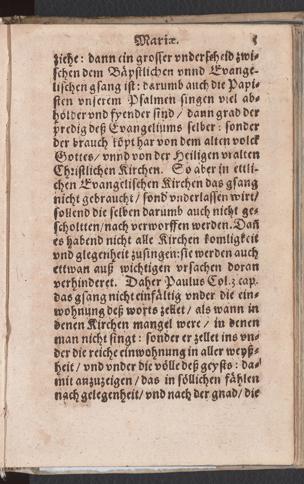 Mariæ. 5
ziehe: dann ein grosser vnderscheid zwi-
schen dem Bäpstlichen vnnd Evange-
lischen gsang ist: darumb auch die Papi-
sten vnserem Psalmen singen viel ab-
holder vnd fyender sind / dann grad der
predig deß Evangeliums selber: sonder
der brauch köpt har von dem alten volck
Gottes / vnnd von der Heiligen vralten
Christlichen Kirchen. So aber in ettli-
chen Evangelischen Kirchen das gsang
nicht gebraucht / sond vnderlassen wirt /
sollend die selben darumb auch nicht ge-
scholtten / nach verworffen werden. Dañ
es habend nicht alle Kirchen komligkeit
vnd glegenheit zusingen: sie werden auch
ettwan auß wichtigen vrsachen doran
verhinderet. Daher Paulus Col. 3 cap.
das gsang nicht einfältig vnder die ein-
wohnung deß worts zellet / als wann in
denen Kirchen mangel were / in denen
man nicht singt: sonder er zellet ins vn-
der die reiche einwohnung in aller weyß-
heit / vnd vnder die völle deß geysts: da-
mit anzuzeigen / das in söllichen fählen
nach gelegenheit / vnd nach der gnad / die